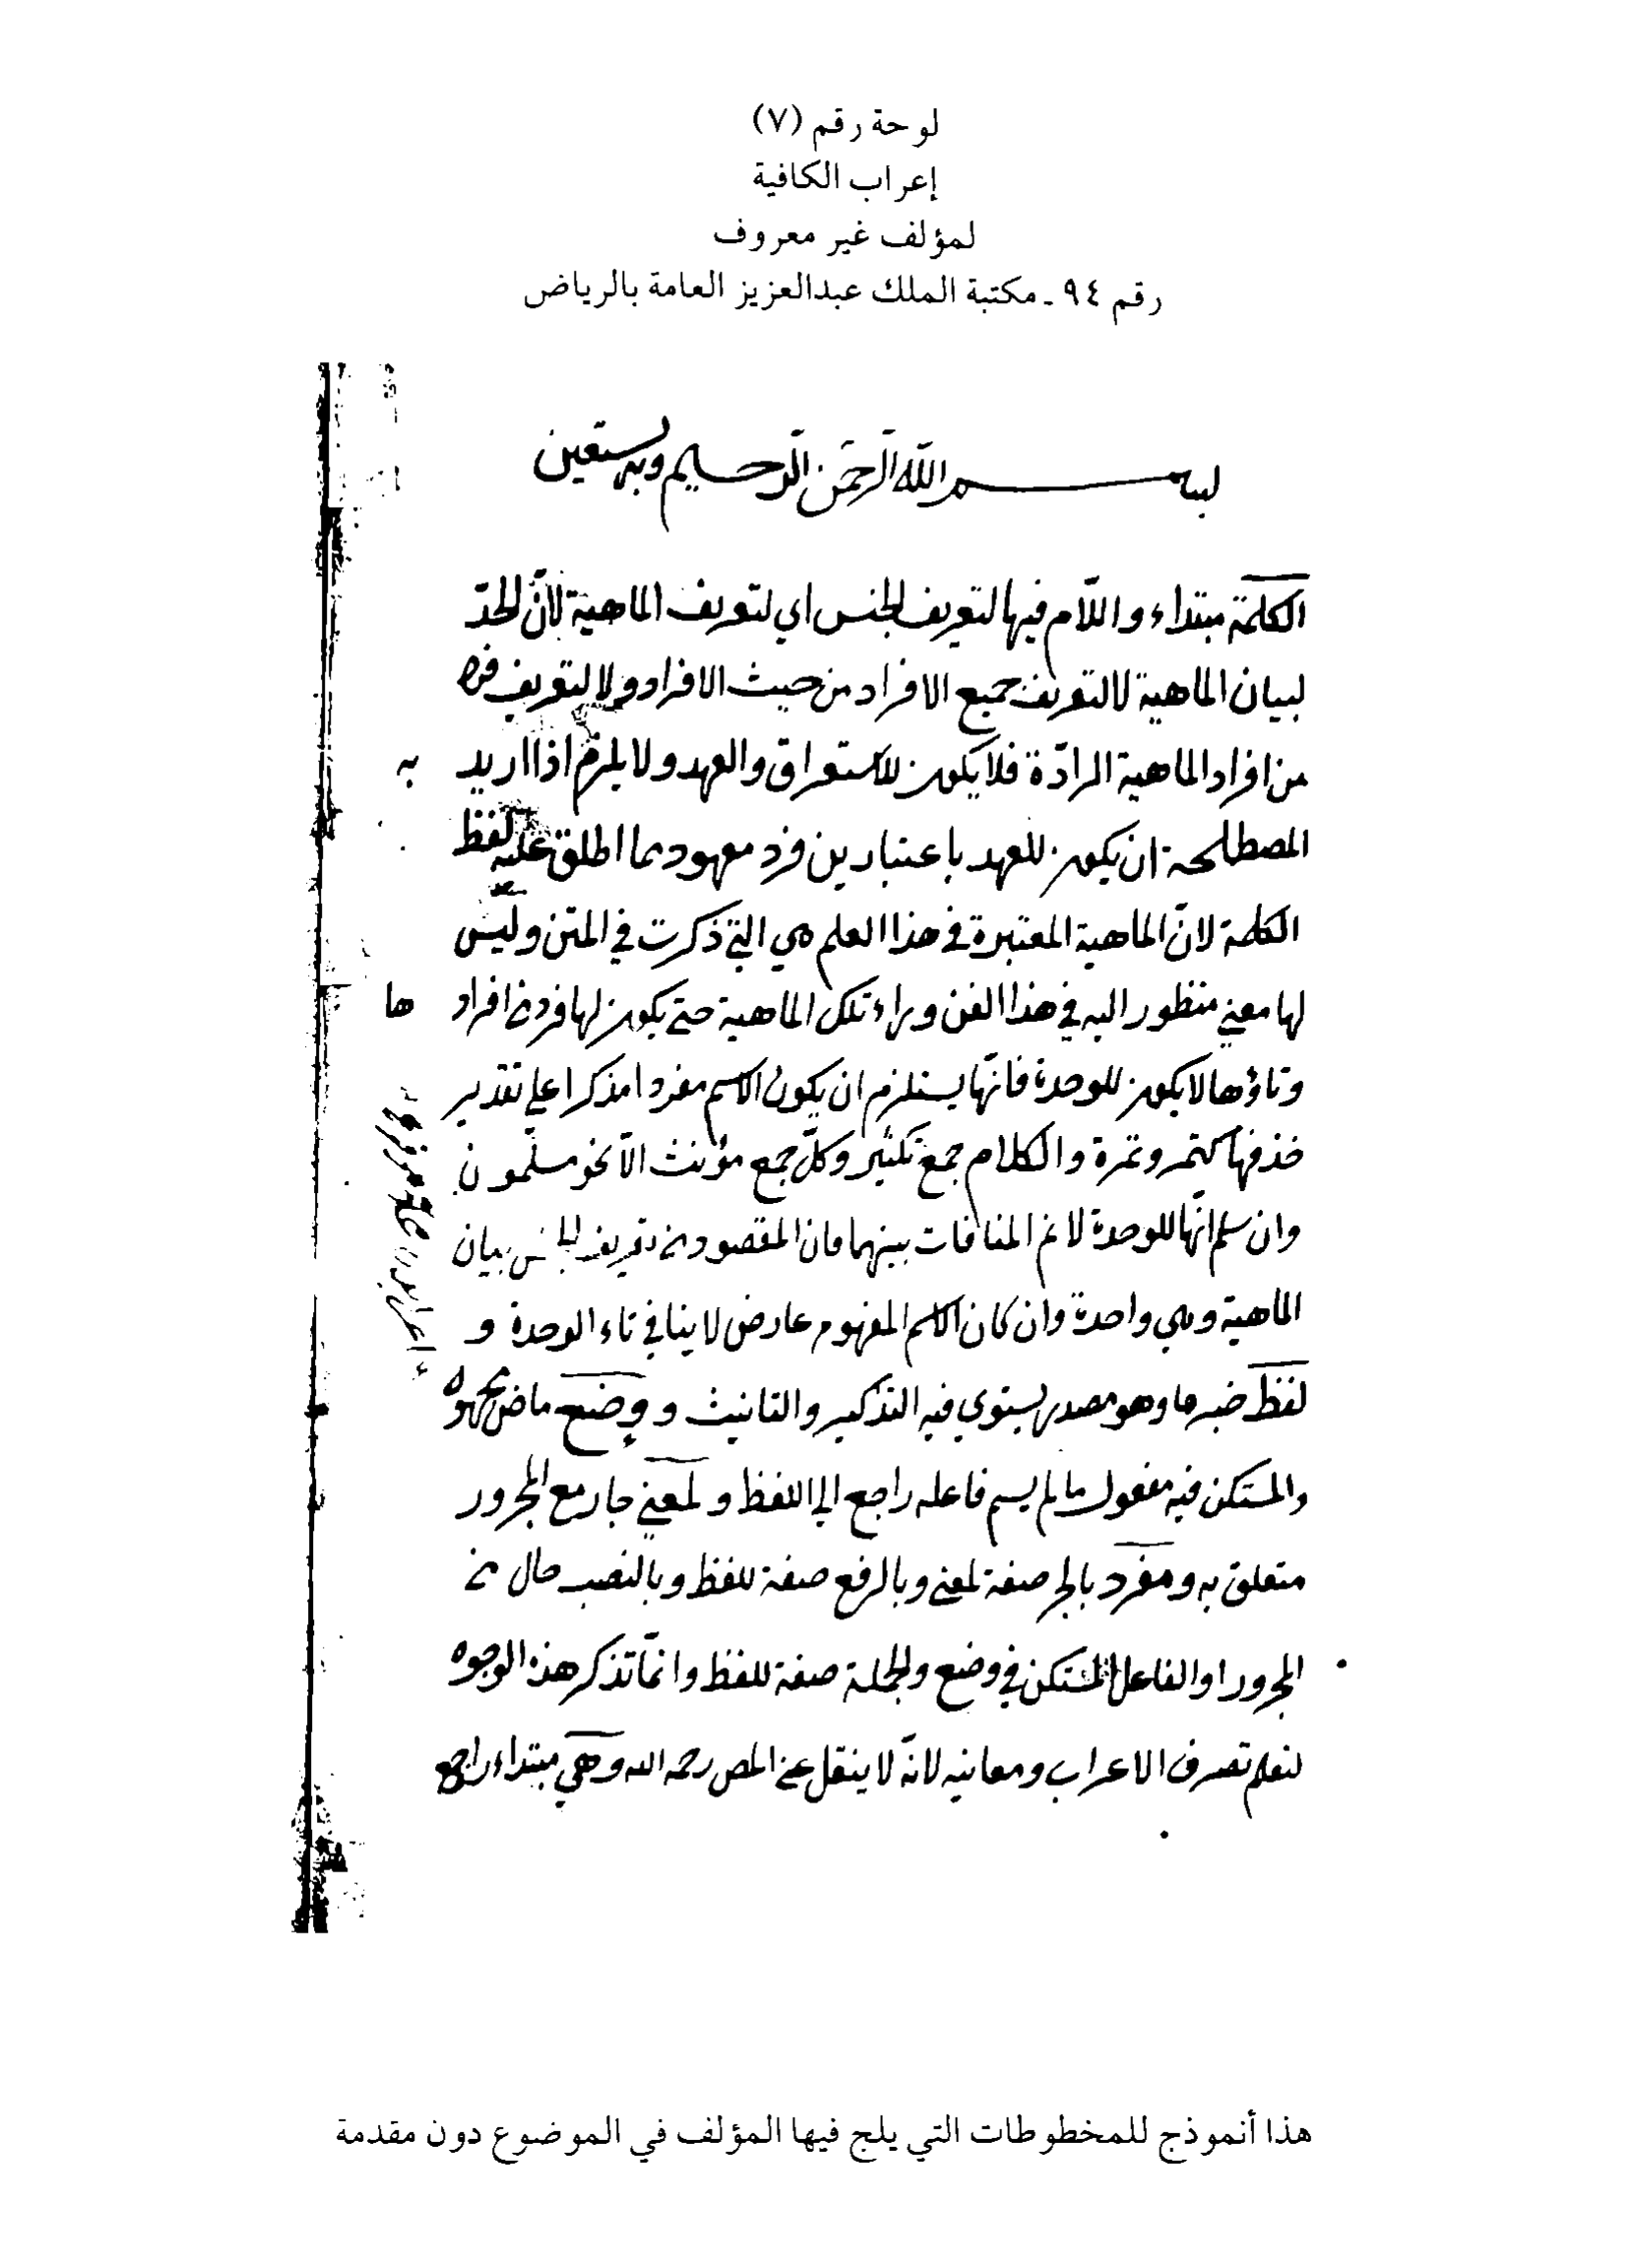 لوحة رقم (٧)
إعراب الكافية
لمؤلف غير معروف
رقم ٩٤ ـ مكتبة الملك عبدالعزيز العامة بالرياض
بسم الله الرحمن الرحيم وبه نستعين
الكلمة مبتداء واللّام فيها لتعريف الجنس اي لتعريف الماهية لانّ الحدّ
لبيان الماهية لا لتعريف جميع الافراد من حيث الافراد ولا لتعريف فرد
من افراد الماهية المرادّة فلا يكون للاستغراق والعهد ولا يلزم اذا اريد به
المصطلحة ان يكون للعهد باعتبار فرد معهود مما اطلق عليه لفظ
الكلمة لانّ الماهية المعتبرة في هذا العلم هي التي ذكرت في المتن وليس
لها معني منظور اليه في هذا الفن وراء تلك الماهية حتي يكون لها فرد من افراد ها
وتاؤها لا يكون للوحدة فانّها يستلزم ان يكون الاسم مفردا مذكرا علي تقدير
حذفها كتمر وتمرة والكلام جمع تكثير وكلّ جمع مؤنث الّا نحو مسلمون
وان سلم انّها للوحدة لا نم المنافات بينهما فان المقصود من تعريف الجنس بيان
الماهية وهي واحدة وان كان الاسم المفهوم عارض لا ينافي تاء الوحدة و
لفظ خبرها وهو مصدر يستوي فيه التذكير والتانيث و وضع ماض مجهول
والمستكن فيه مفعول ما لم يسم فاعله راجع الي اللفظ و لمعني جار مع المجرور
متعلق به و مفرد بالجر صفة لمعني وبالرفع صفة للفظ وبالنصب حال من
المجرور او الفاعل المستكن في وضع والجملة صفة للفظ وانّما تذكر هذه الوجوه
لتعلم تصرف الاعراب ومعانيه لانّه لا ينقل عن المص رحمه الله وهي مبتداء راجع
هذا أنموذج للمخطوطات التي يلج فيها المؤلف في الموضوع دون مقدمة